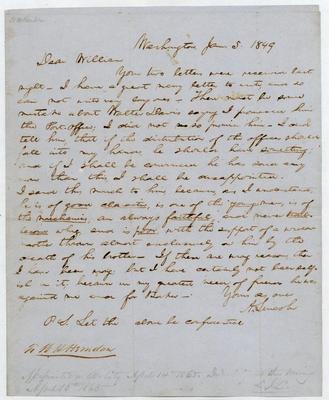 Washington Jan 5. 1849
Dear William
Your two letters were received last
night. I have a great many letters to write, and so
can not write very long ones. There must be some
mistake about Walter Davis saying I promised him
the Post-office. I did not so promise him. I did
tell him, that if the distribution of the offices should
fall into my hands, he should have something;
and if I shall be convinced he has said any
more than this, I shall be disappointed.
I said this much to him, because, as I understand,
he is of good character, is one of the young men, is of
the mechanics, as always faithful, and never
is poor with the support of a widow
mother thrown almost exclusively on him by the
death of his brother. If these are wrong reasons, then
I have been wrong; but I have certainly not been selfish
in it; because in my greatest need of friends he was
against me and for Baker.
Yours as ever
A. Lincoln
P. S. Let the above be confidential
To W H Herndon
April 14th 1865
April 15th 1865